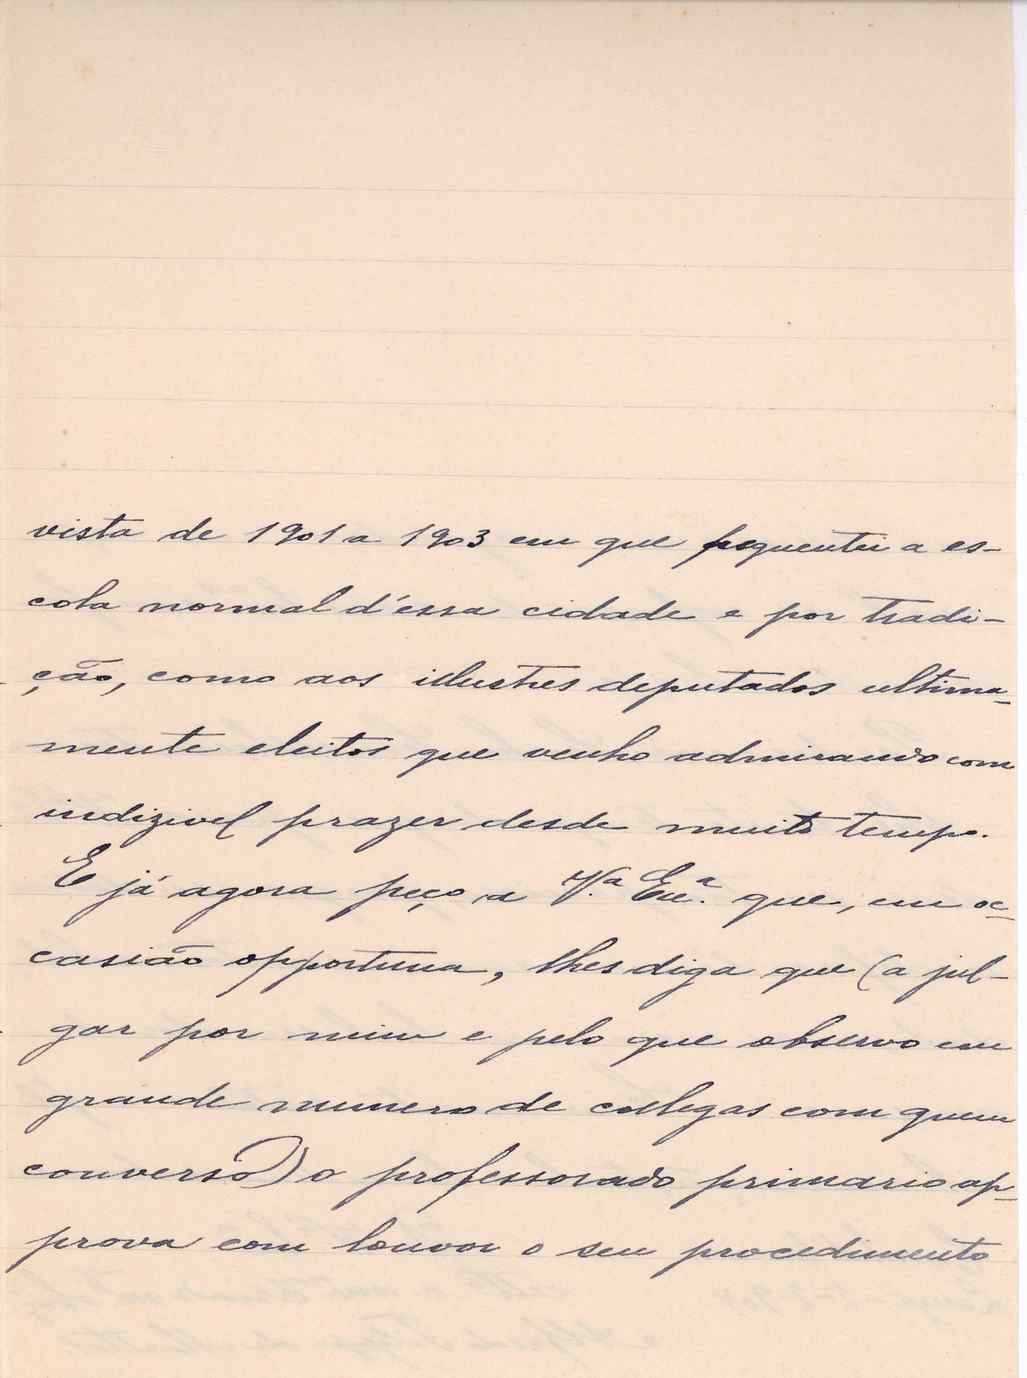 vista de 1901 a 1903 em que frequentei a es-
cola normal d'essa cidade e por tradi-
ção, como aos illustres deputados ultima-
mente eleitos que venho admirando com
indizivel prazer desde muito tempo.
E já agora peço a V.ª Ex.ª que, em oc-
casião opportuna, lhes diga que (a jul-
gar por mim e pelo que observo em
grande numero de collegas com quem
converso) o professorado primario ap-
prova com louvor o seu procedimento